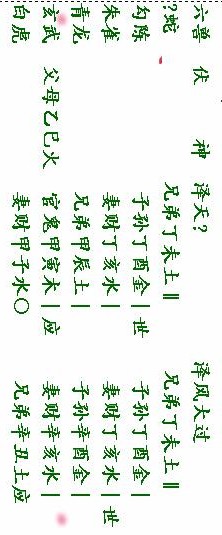 六兽 伏 神 泽天? 泽风大过
?蛇 兄弟丁未土 ‖ 兄弟丁未土 ‖
勾陈 子孙丁酉金 | 世 子孙丁酉金 |
朱雀 妻财丁亥水 | 妻财丁亥水 | 世
青龙 兄弟甲辰土 | 子孙辛酉金 |
玄武 父母乙巳火 官鬼甲寅木 | 应 妻财辛亥水 |
白虎 妻财甲子水○ 兄弟辛丑土 应